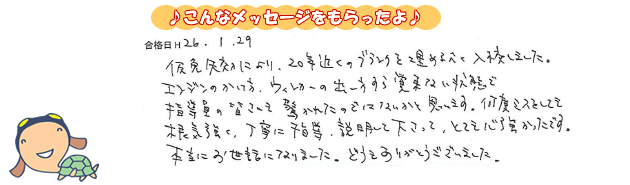 ♪こんなメッセージをもらったよ♪
合格日H26.1.29
仮免失効により、20年近くのブランクを埋めるべく入校しました。
エンジンのかけ方、ウィンカーの出し方すら覚束ない状態で
指導員の皆さんも驚かれたのではないかと思います。何度ミスをしても
根気強く、丁寧に指導、説明して下さって、とても心強かったです。
本当にお世話になりました。どうもありがとうございました。